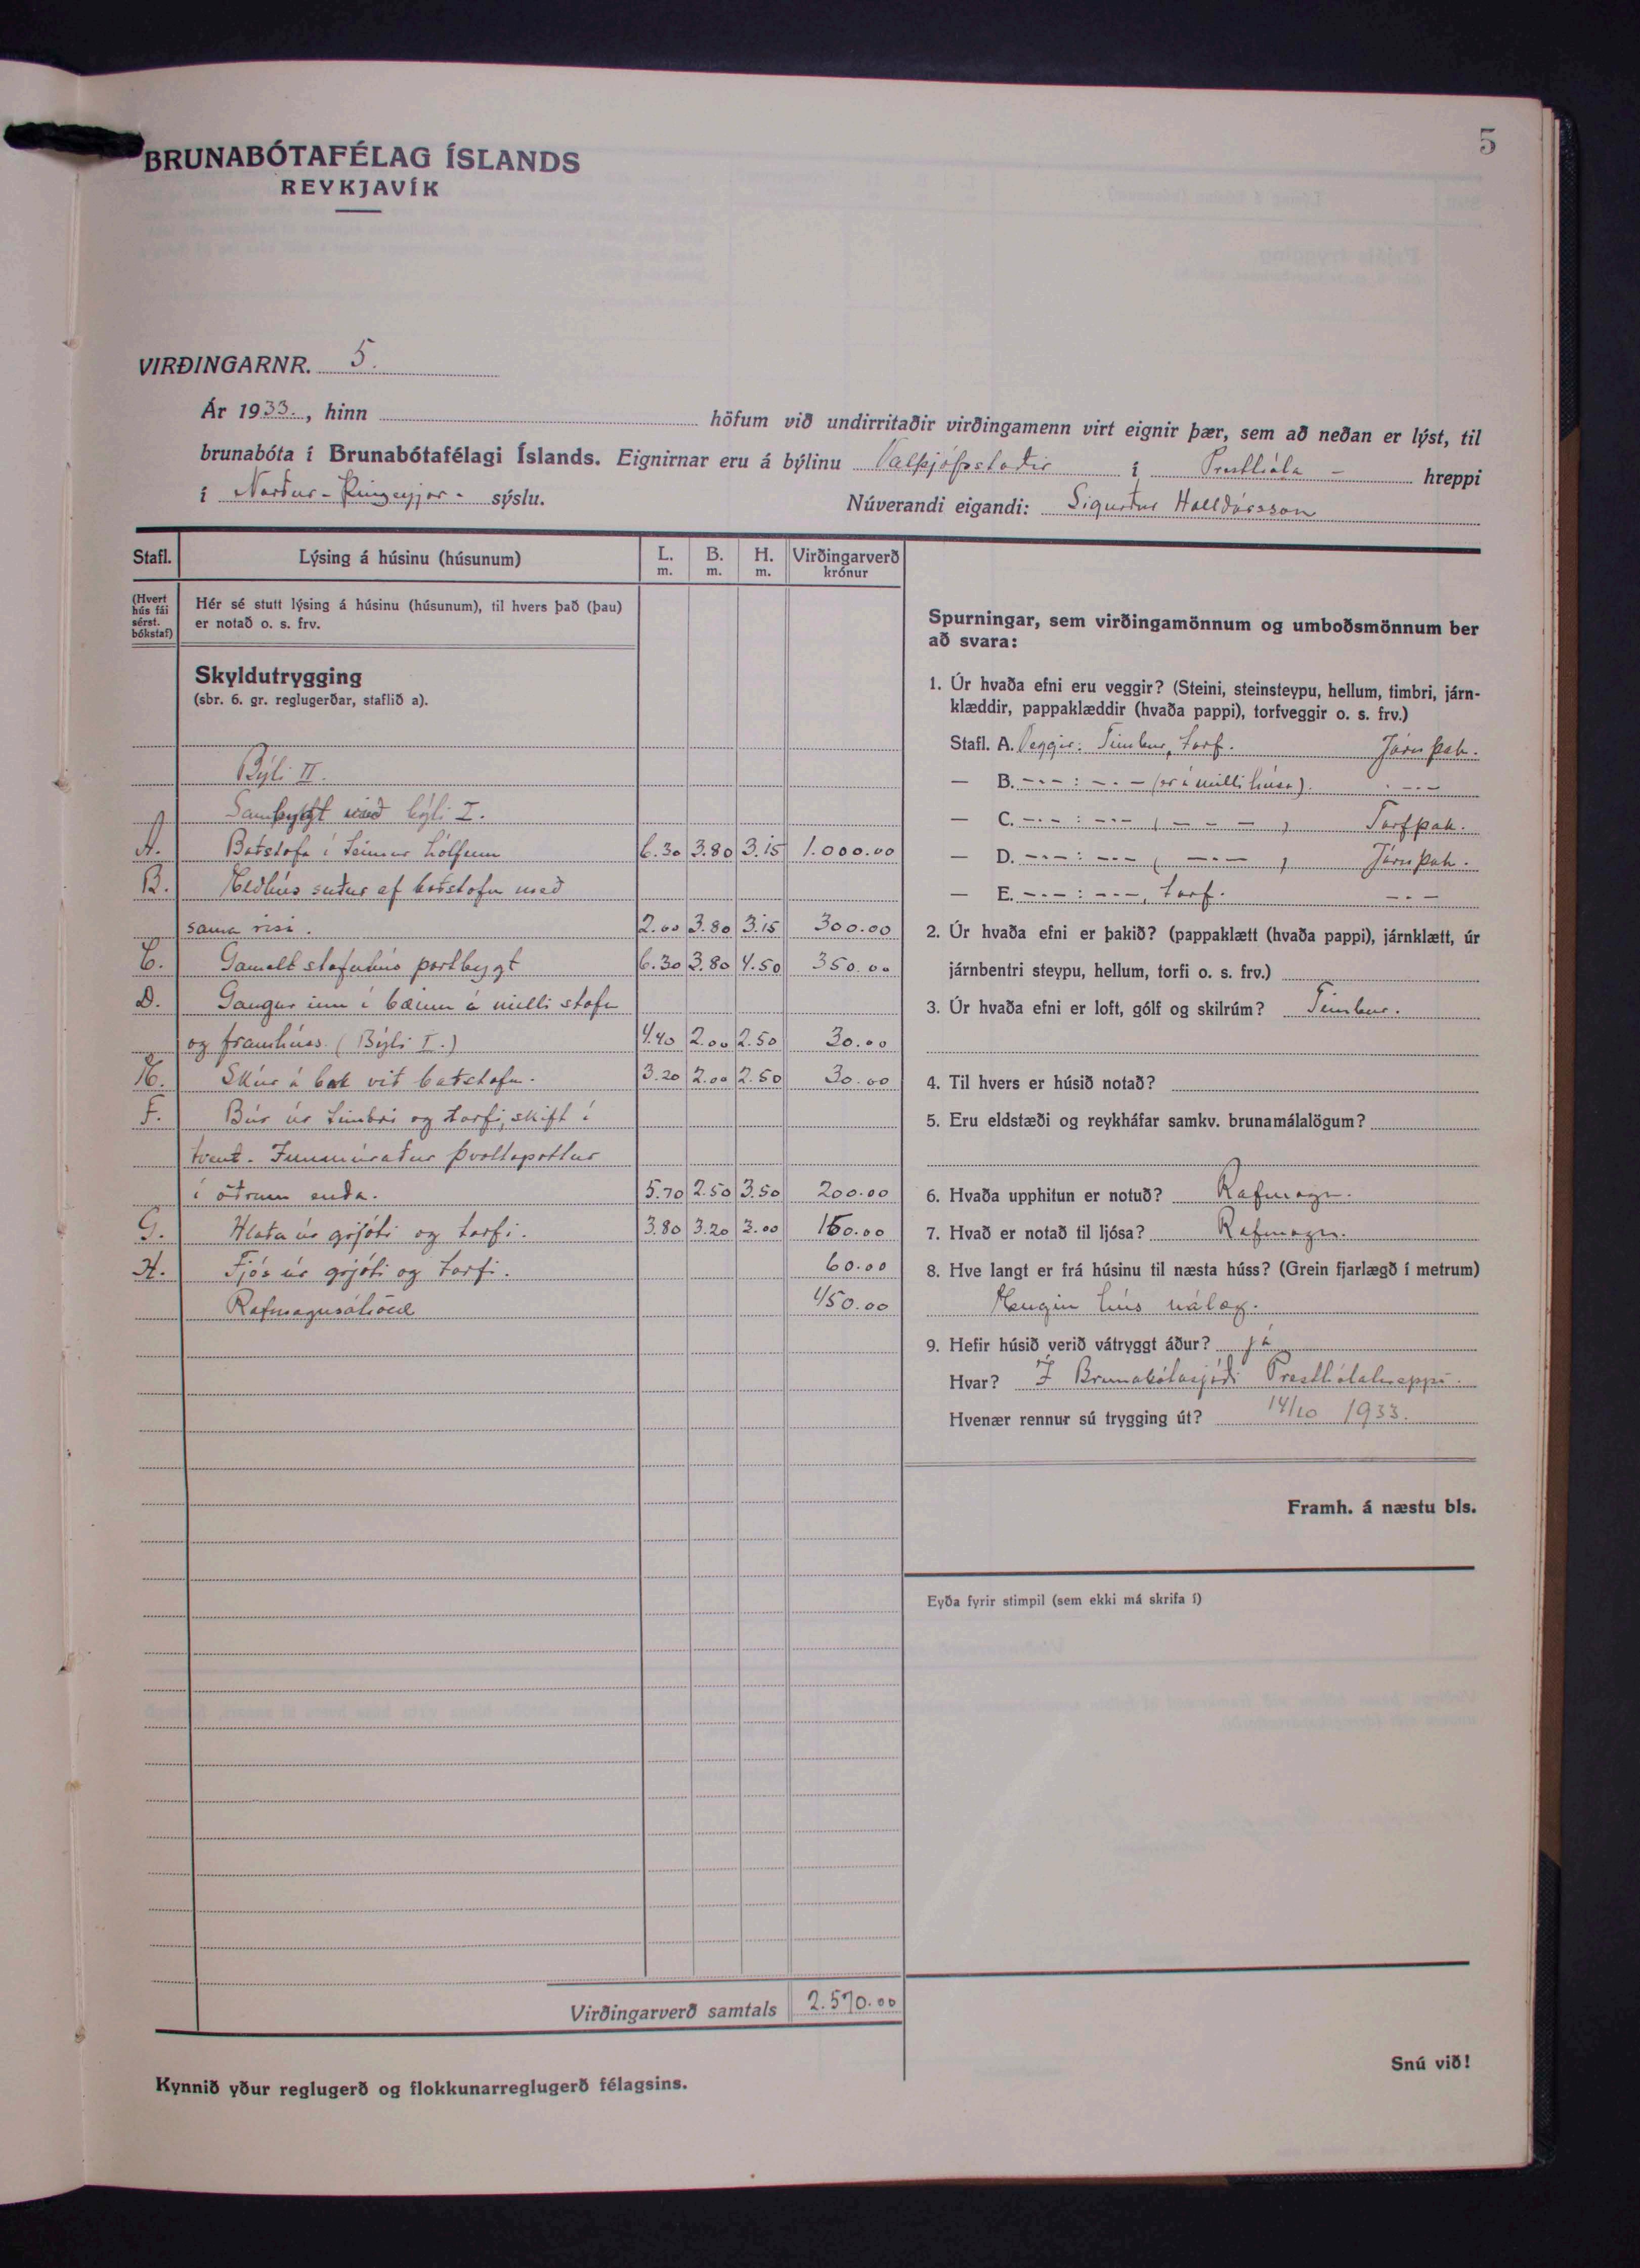 5
BRUNABÓTAFÉLAG ÍSLANDS
REYKJAVÍK
VIRÐINGARNR. 5.
Ár 1933., hinn höfum við undirritaðir virðingamenn virt eignir þær, sem að neðan er lýst, til
brunabóta í Brunabótafélagi Íslands. Eignirnar eru á býlinu Valþjófsstaðir í Presthóla - hreppi
í Norður-Þingeyjar- sýslu. Núverandi eigandi: Sigurður Halldórsson
Stafl. Lýsing á húsinu (húsunum) L. m. B. m. H. m. Virðingarverð krónur
(Hvert hús fái sérst. bókstaf)
Hér sé stutt lýsing á húsinu (húsunum), til hvers það (þau)
er notað o. s. frv.
Skyldutrygging
(sbr. 6. gr. reglugerðar, staflið a).
Býli II.
Sambygt við býli I.
A. Baðstofa í teimur hólfum 6.30 3.80 3.15 1.000.00
B. Eldhús suður af baðstofu með
sama risi. 2.00 3.80 3.15 300.00
C. Gamalt stofuhús portbygt 6.30 3.80 4.50 350.00
D. Gangur inn í bæinn á milli stofu
og framhúss. (Býli I.) 4.40 2.00 2.50 30.00
E. Skúr á bak við baðstofu. 3.20 2.00 2.50 30.00
F. Búr úr timbri og torfi, skift í
tvent. Innmúraður þvottapottur
í öðrum enda. 5.70 2.50 3.50 200.00
G. Hlaða úr grjóti og torfi. 3.80 3.20 3.00 150.00
H. Fjós úr grjóti og torfi. 60.00
Rafmagnsáhöld 450.00
Virðingarverð samtals 2.570.00
Kynnið yður reglugerð og flokkunarreglugerð félagsins.
Spurningar, sem virðingamönnum og umboðsmönnum ber
að svara:
1. Úr hvaða efni eru veggir? (Steini, steinsteypu, hellum, timbri, járn-
klæddir, pappaklæddir (hvaða pappi), torfveggir o. s. frv.)
Stafl. A. Veggir: Timbur, torf. Járnþak.
— B. -.- : -.- (er á milli húsa). -.-
— C. -.- : -.- ( - - - ) Torfþak.
— D. -.- : -.- ( -.- ) Járnþak.
— E. -.- : -.-, torf. -.-
2. Úr hvaða efni er þakið? (pappaklætt (hvaða pappi), járnklætt, úr
járnbentri steypu, hellum, torfi o. s. frv.)
3. Úr hvaða efni er loft, gólf og skilrúm? Timbur.
4. Til hvers er húsið notað?
5. Eru eldstæði og reykháfar samkv. brunamálalögum?
6. Hvaða upphitun er notuð? Rafmagn.
7. Hvað er notað til ljósa? Rafmagn.
8. Hve langt er frá húsinu til næsta húss? (Grein fjarlægð í metrum)
Engin hús nálæg.
9. Hefir húsið verið vátryggt áður? já
Hvar? Í Brunabótasjóði Presthólahreppi.
Hvenær rennur sú trygging út? 14/10 1933.
Framh. á næstu bls.
Eyða fyrir stimpil (sem ekki má skrifa í)
Snú við!